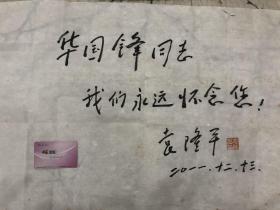 华国锋同志
我们永远怀念您!
袁隆平
二〇一一.十二.十三.